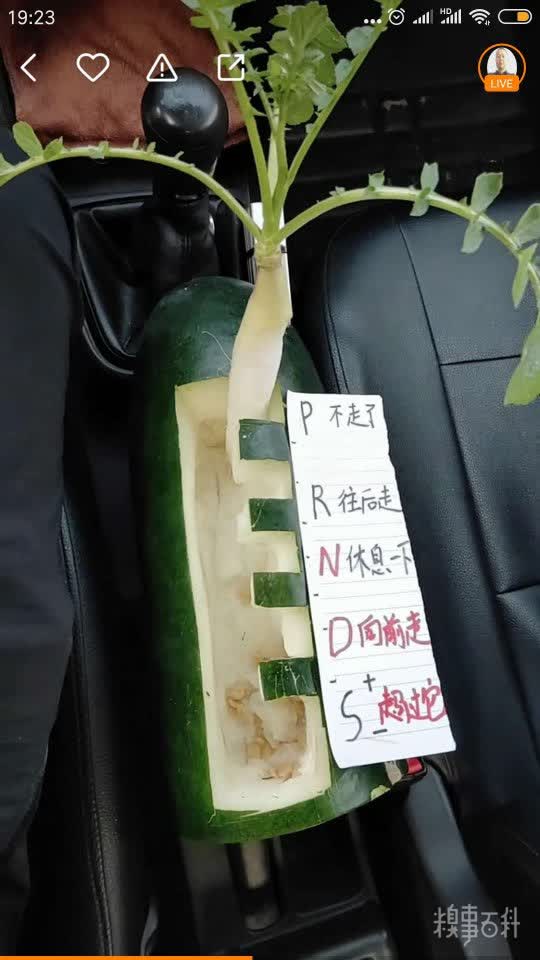 19:23
HD
LIVE
P 不走了
R 往后走
N 休息一下
D 向前走
S + - 超过它
糗事百科